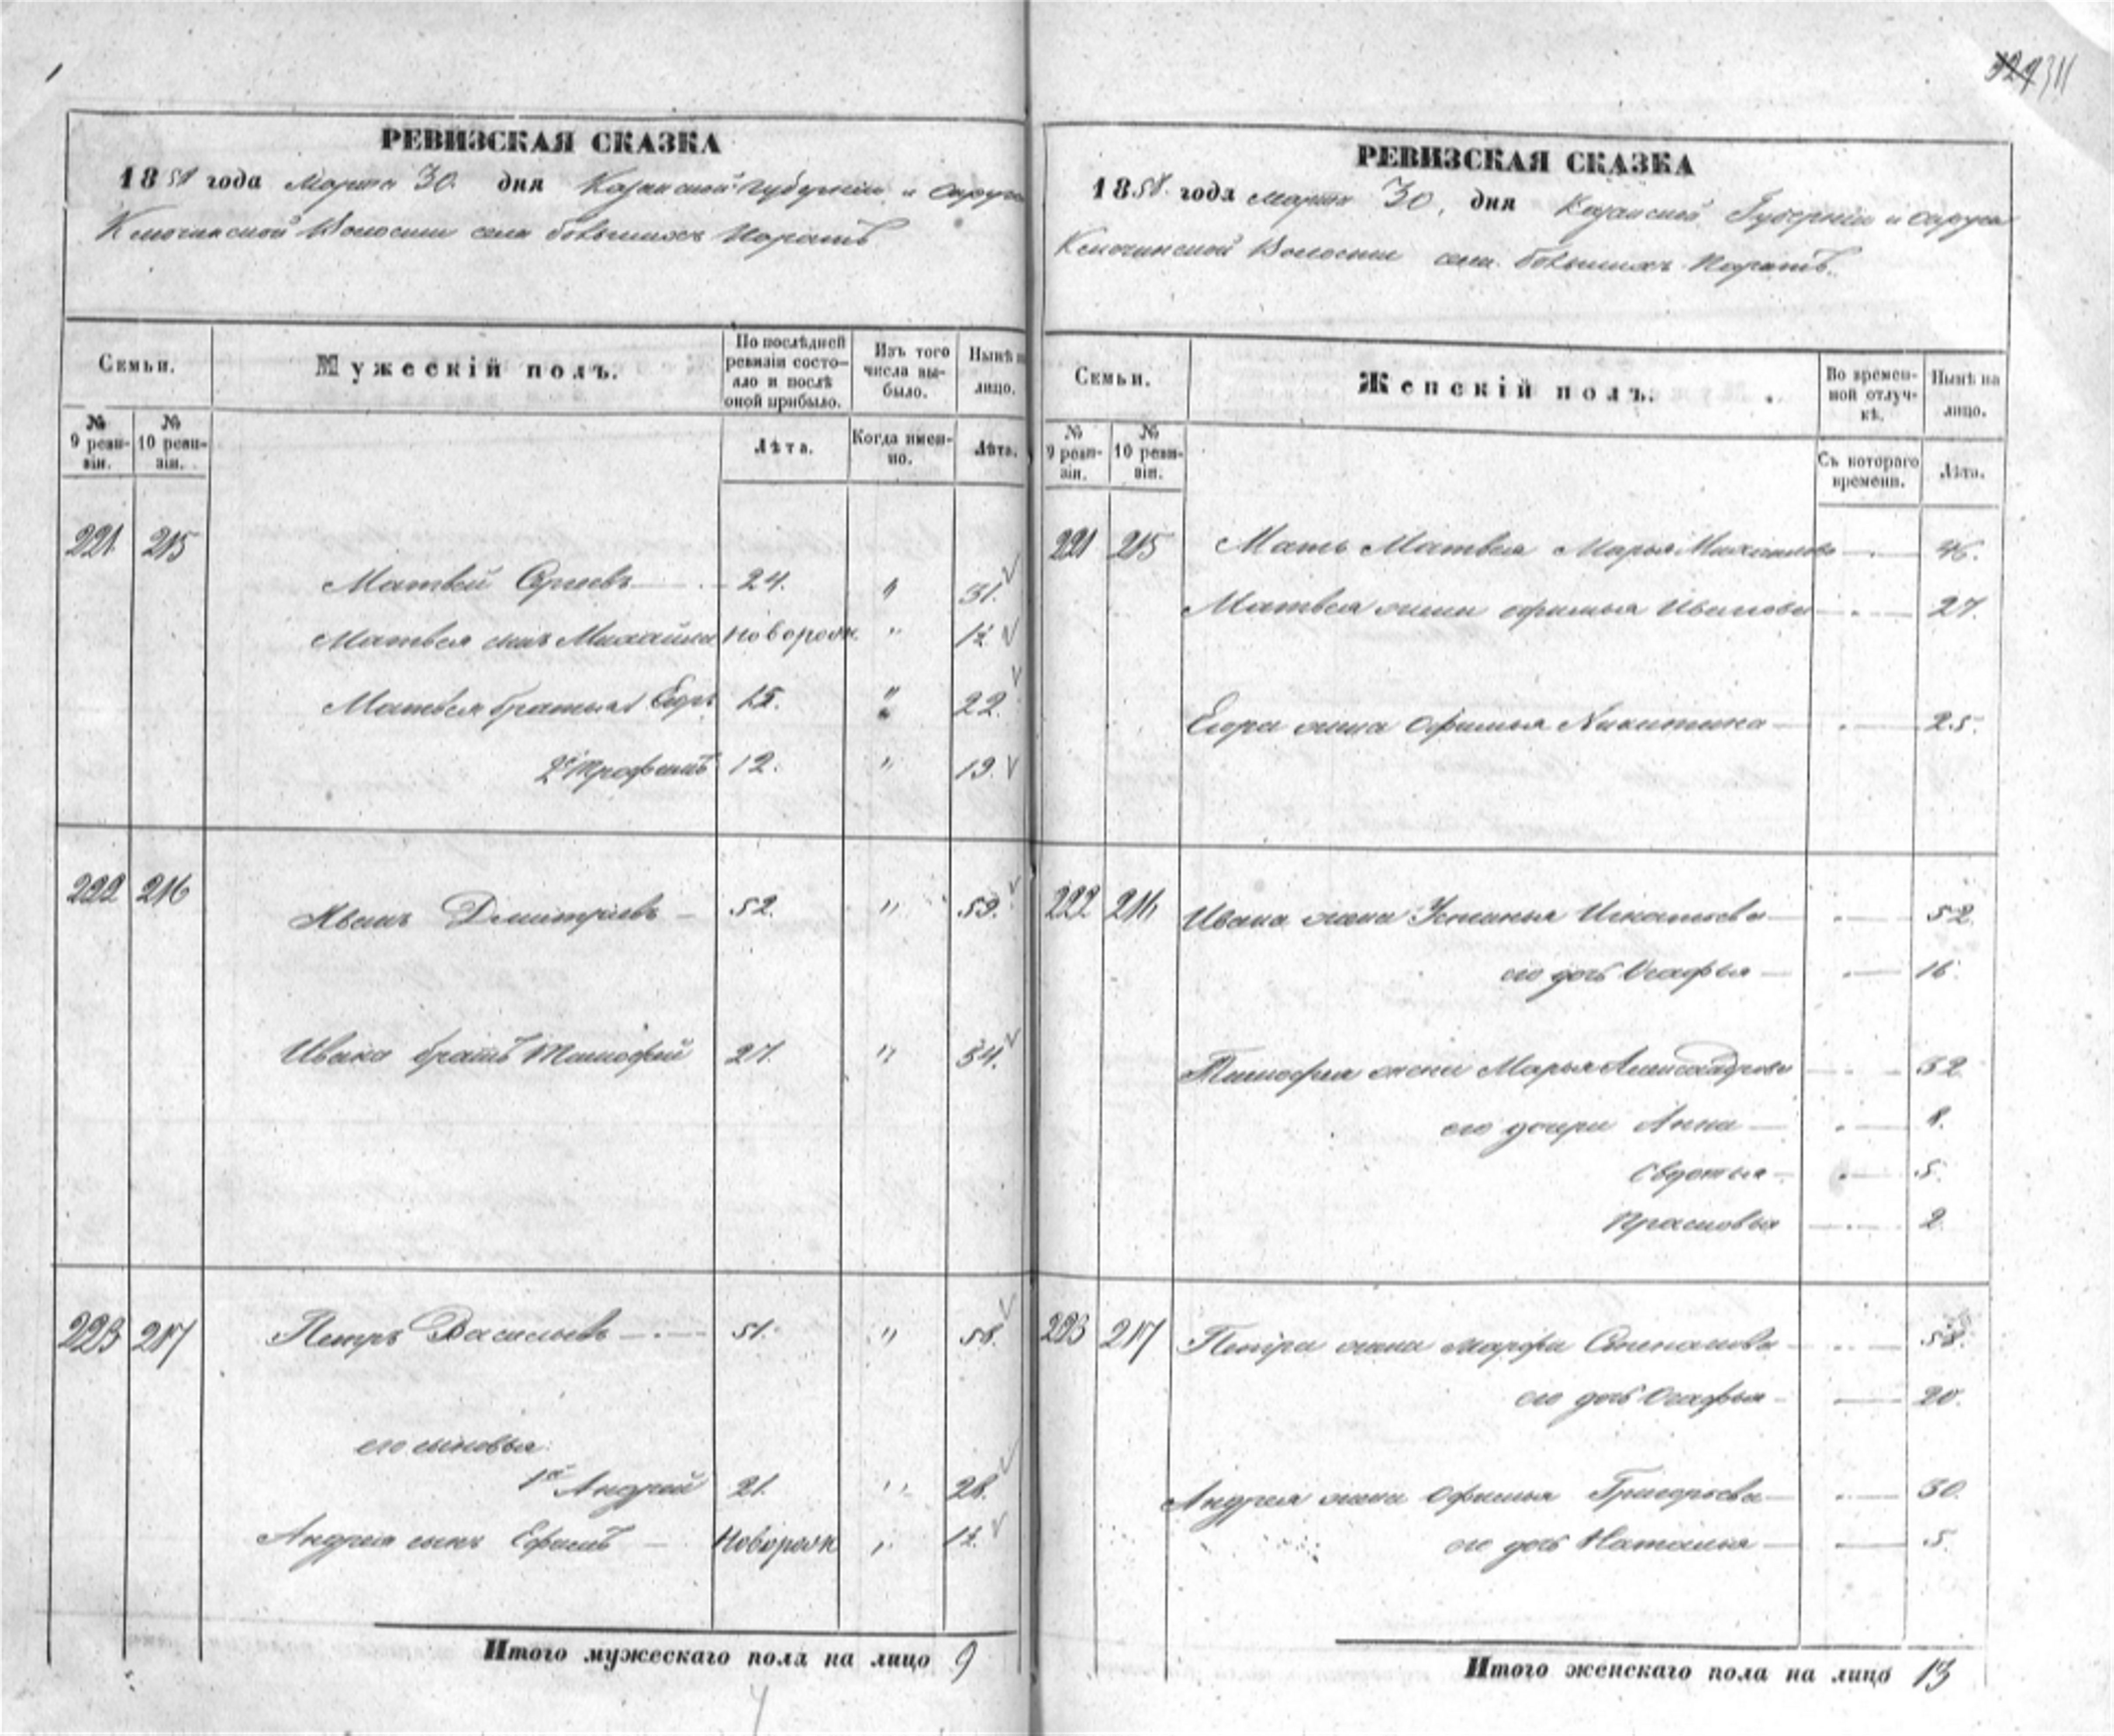 311
РЕВИЗСКАЯ СКАЗКА
1858 года Марта 30. дня Казанской Губернiи и округа
Ключинской Волости села большихъ
Семьи.
Мужескiй полъ.
По послѣдней ревизiи состояло и послѣ оной прибыло.
Изъ того числа выбыло.
Нынѣ на лицо.
№ 9 ревизiи.
№ 10 ревизiи.
Лѣта.
Когда именно.
Лѣта.
221. 215
Матвей Сергеевъ 24. " 31.
Матвея сынъ Михайла новорожд " 1½
Матвея братья 1 Егоръ 15. " 22.
2й Трофимъ 12. " 19.
222 216 Иванъ Дмитрiевъ 52. " 59.
Ивана братъ Тимофей 27. " 34.
223 217 Петръ Васильевъ 51. " 58.
его сыновья
1й Андрей 21. " 28.
Андрея сынъ Ефимъ Новорожд " 1½
Итого мужескаго пола на лицо 9
РЕВИЗСКАЯ СКАЗКА
1858. года Марта 30, дня Казанской Губернiи и округа
Ключинской Волости села большихъ
Семьи.
Женскiй полъ.
Во временной отлучкѣ.
Нынѣ на лицо.
№ 9 ревизiи.
№ 10 ревизiи.
Съ котораго времени.
Лѣта.
221 215 Мать Матвея Марья Михайлова 46.
Матвея жена Офимья Иванова 27.
Егора жена Офимья Никитина 25.
222 216 Ивана жена Устинья Игнатьева 52.
его дочь Огафья 16.
Тимофея жена Марья Александрова 32.
его дочери Анна 8.
Овдотья 5.
Прасковья 2.
223 217 Петра жена Марфа Степанова 58.
его дочь Огафья 20.
Андрея жена Офимья Григорьева 30.
его дочь Наталья 5.
Итого женскаго пола на лицо 13